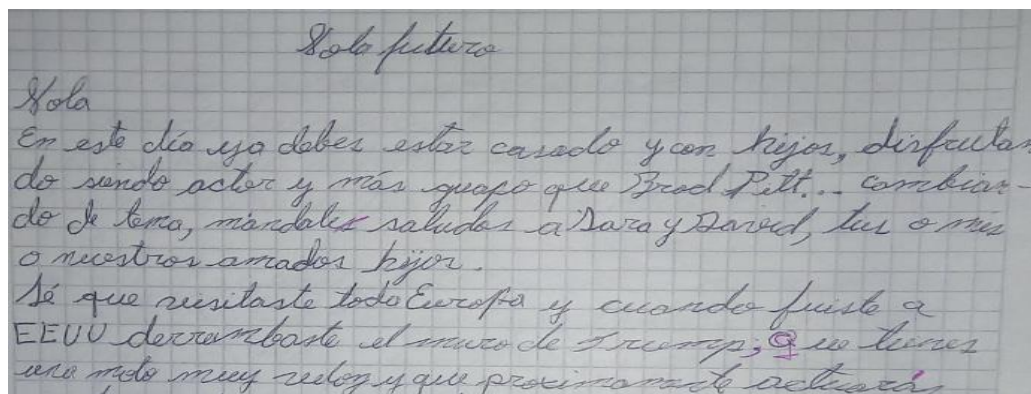 Hola futuro
Hola
En este día ya debes estar casado y con hijos, disfrutan
do siendo actor y más guapo que Brad Pitt... cambian-
do de tema, mandales saludos a Sara y David, tus o mis
o nuestros amados hijos.
Sé que visitaste toda Europa y cuando fuiste a
EEUU derrumbaste el muro de Trump; que tienes
una moto muy veloz y que proximamente actuarás